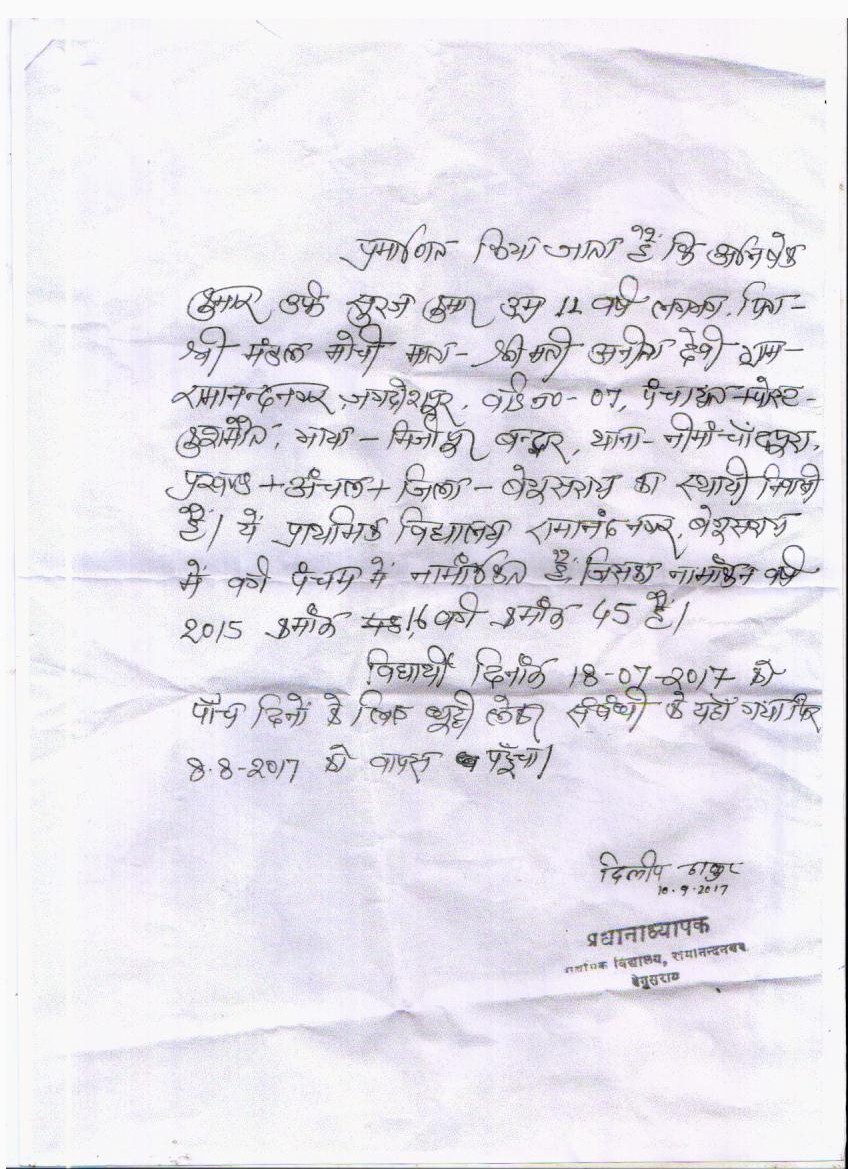 प्रमाणित किया जाता है कि अभिषेक
कुमार उर्फ सुरज कुमार उम्र 12 वर्ष लगभग, पिता-
श्री मंडल मोची माता- श्रीमती अनीता देवी ग्राम-
रामानन्दनगर, जगदीशपुर, वार्ड नं०- 07, पंचायत-पोस्ट-
कुशमौत, भाया - मिर्जापुर बन्द्वार, थाना- नीमाँ चाँदपुरा,
प्रखण्ड + अंचल + जिला - बेगूसराय का स्थायी निवासी
हैं। ये प्राथमिक विद्यालय रामानंदनगर, बेगूसराय
में वर्ग पंचम में नामांकित हैं, जिसका नामांकन वर्ष
2015 क्रमांक 16 वर्ग क्रमांक 45 है।
विद्यार्थी दिनांक 18-07-2017 को
पाँच दिनों के लिए छुट्टी लेकर संबंधी के यहाँ गया फिर
8.8-2017 को वापस पहुँचा।
दिलीप ठाकुर
10.9.2017
प्रधानाध्यापक
प्राथमिक विद्यालय, रामानन्दनगर
बेगुसराय